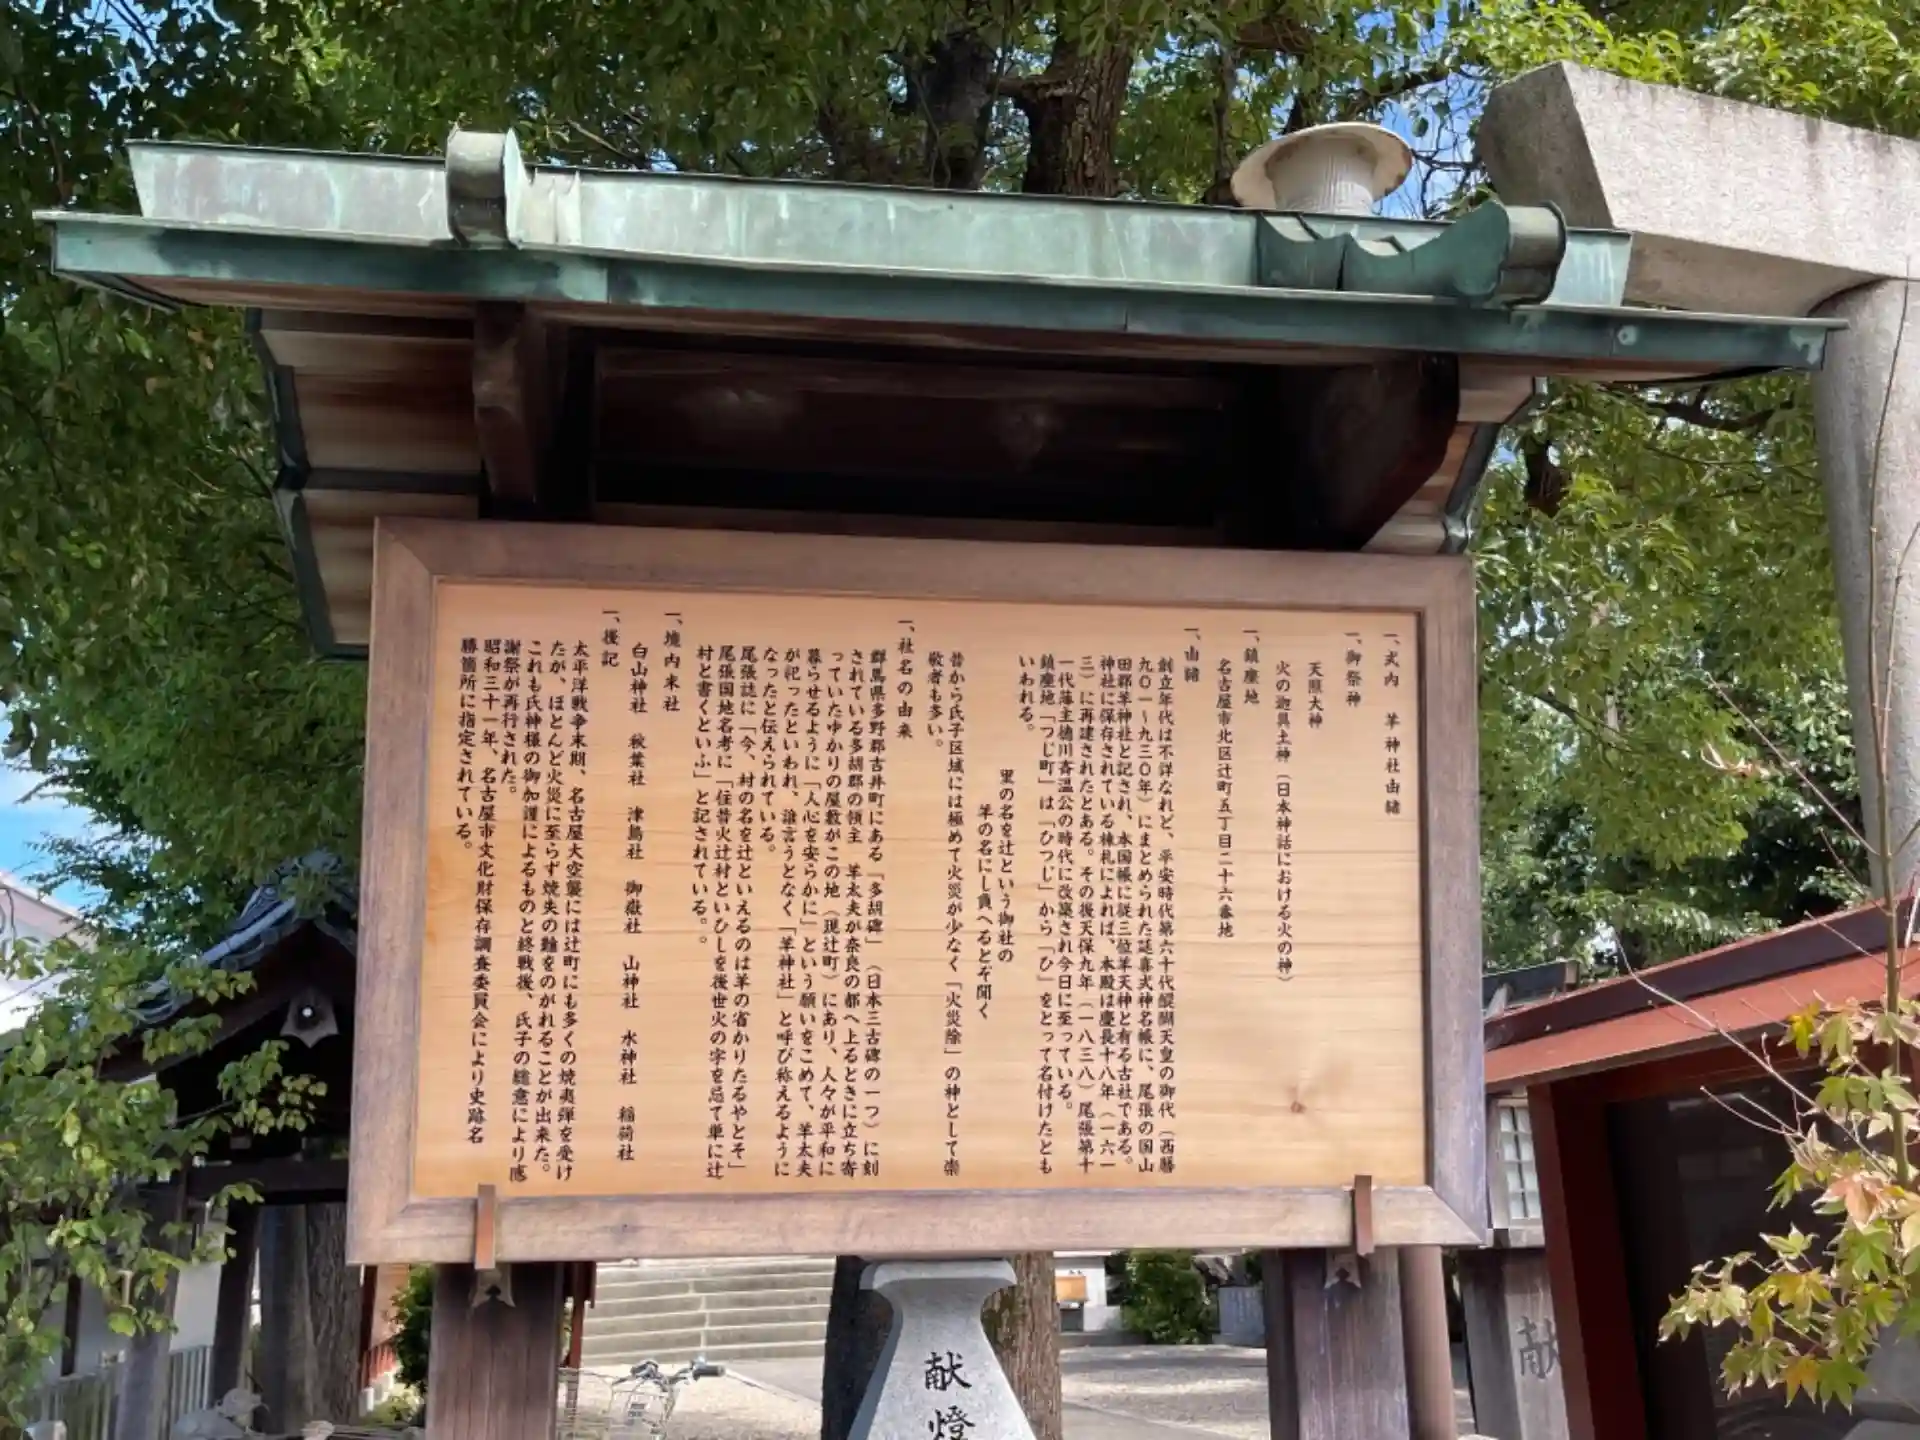 一、式内　羊神社由緒
一、御祭神
天照大神
火の迦具土神（日本神話における火の神）
一、鎮座地
名古屋市北区辻町五丁目二十六番地
一、由緒
創立年代は不詳なれど、平安時代第六十代醍醐天皇の御代（西暦
九〇一～九三〇年）にまとめられた延喜式神名帳に、尾張の国山
田郡羊神社と記され、本国帳に従三位羊天神と有る古社である。
神社に保存されている棟札によれば、本殿は慶長十八年（一六一
三）に再建されたとある。その後天保九年（一八三八）尾張第十
一代藩主徳川斉温公の時代に改築され今日に至っている。
鎮座地「つじ町」は「ひつじ」から「ひ」をとって名付けたとも
いわれる。
里の名を辻という御社の
羊の名にし負へるとぞ聞く
昔から氏子区域には極めて火災が少なく「火災除」の神として崇
敬者も多い。
一、社名の由来
群馬県多野郡吉井町にある「多胡碑」（日本三古碑の一つ）に刻
されている多胡郡の領主　羊太夫が奈良の都へ上るときに立ち寄
っていたゆかりの屋敷がこの地（現辻町）にあり、人々が平和に
暮らせるように「人心を安らかに」という願いをこめて、羊太夫
が祀ったといわれ、誰言うとなく「羊神社」と呼び称えるように
なったと伝えられている。
尾張誌に「今、村の名を辻といえるのは羊の省かりたるやとぞ」
尾張国地名考に「往昔火辻村といひしを後世火の字を忌て単に辻
村と書くといふ」と記されている。。
一、境内末社
白山神社　秋葉社　津島社　御嶽社　山神社　水神社　稲荷社
一、後記
太平洋戦争末期、名古屋大空襲には辻町にも多くの焼夷弾を受け
たが、ほとんど火災に至らず焼失の難をのがれることが出来た。
これも氏神様の御加護によるものと終戦後、氏子の総意により感
謝祭が再行された。
昭和三十一年、名古屋市文化財保存調査委員会により史跡名
勝箇所に指定されている。
献燈
献